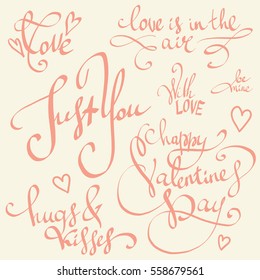 Love
love is in the
air
With
LOVE
be
mine
Just You
happy
Valentine's
Day
hugs &
kisses
shutterstock.com · 558679561